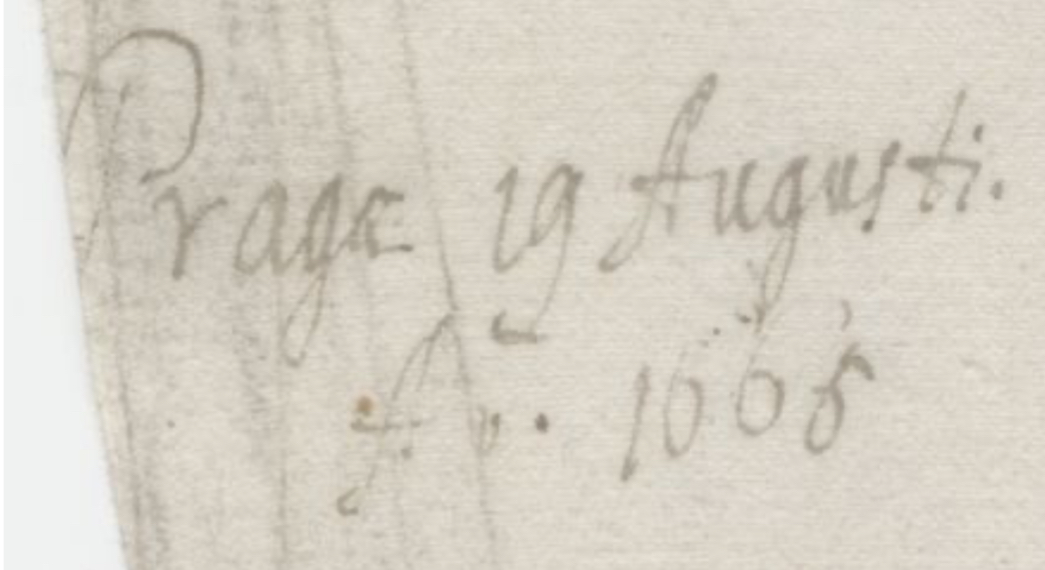 Pragæ 19 Augusti.
Aº. 1665